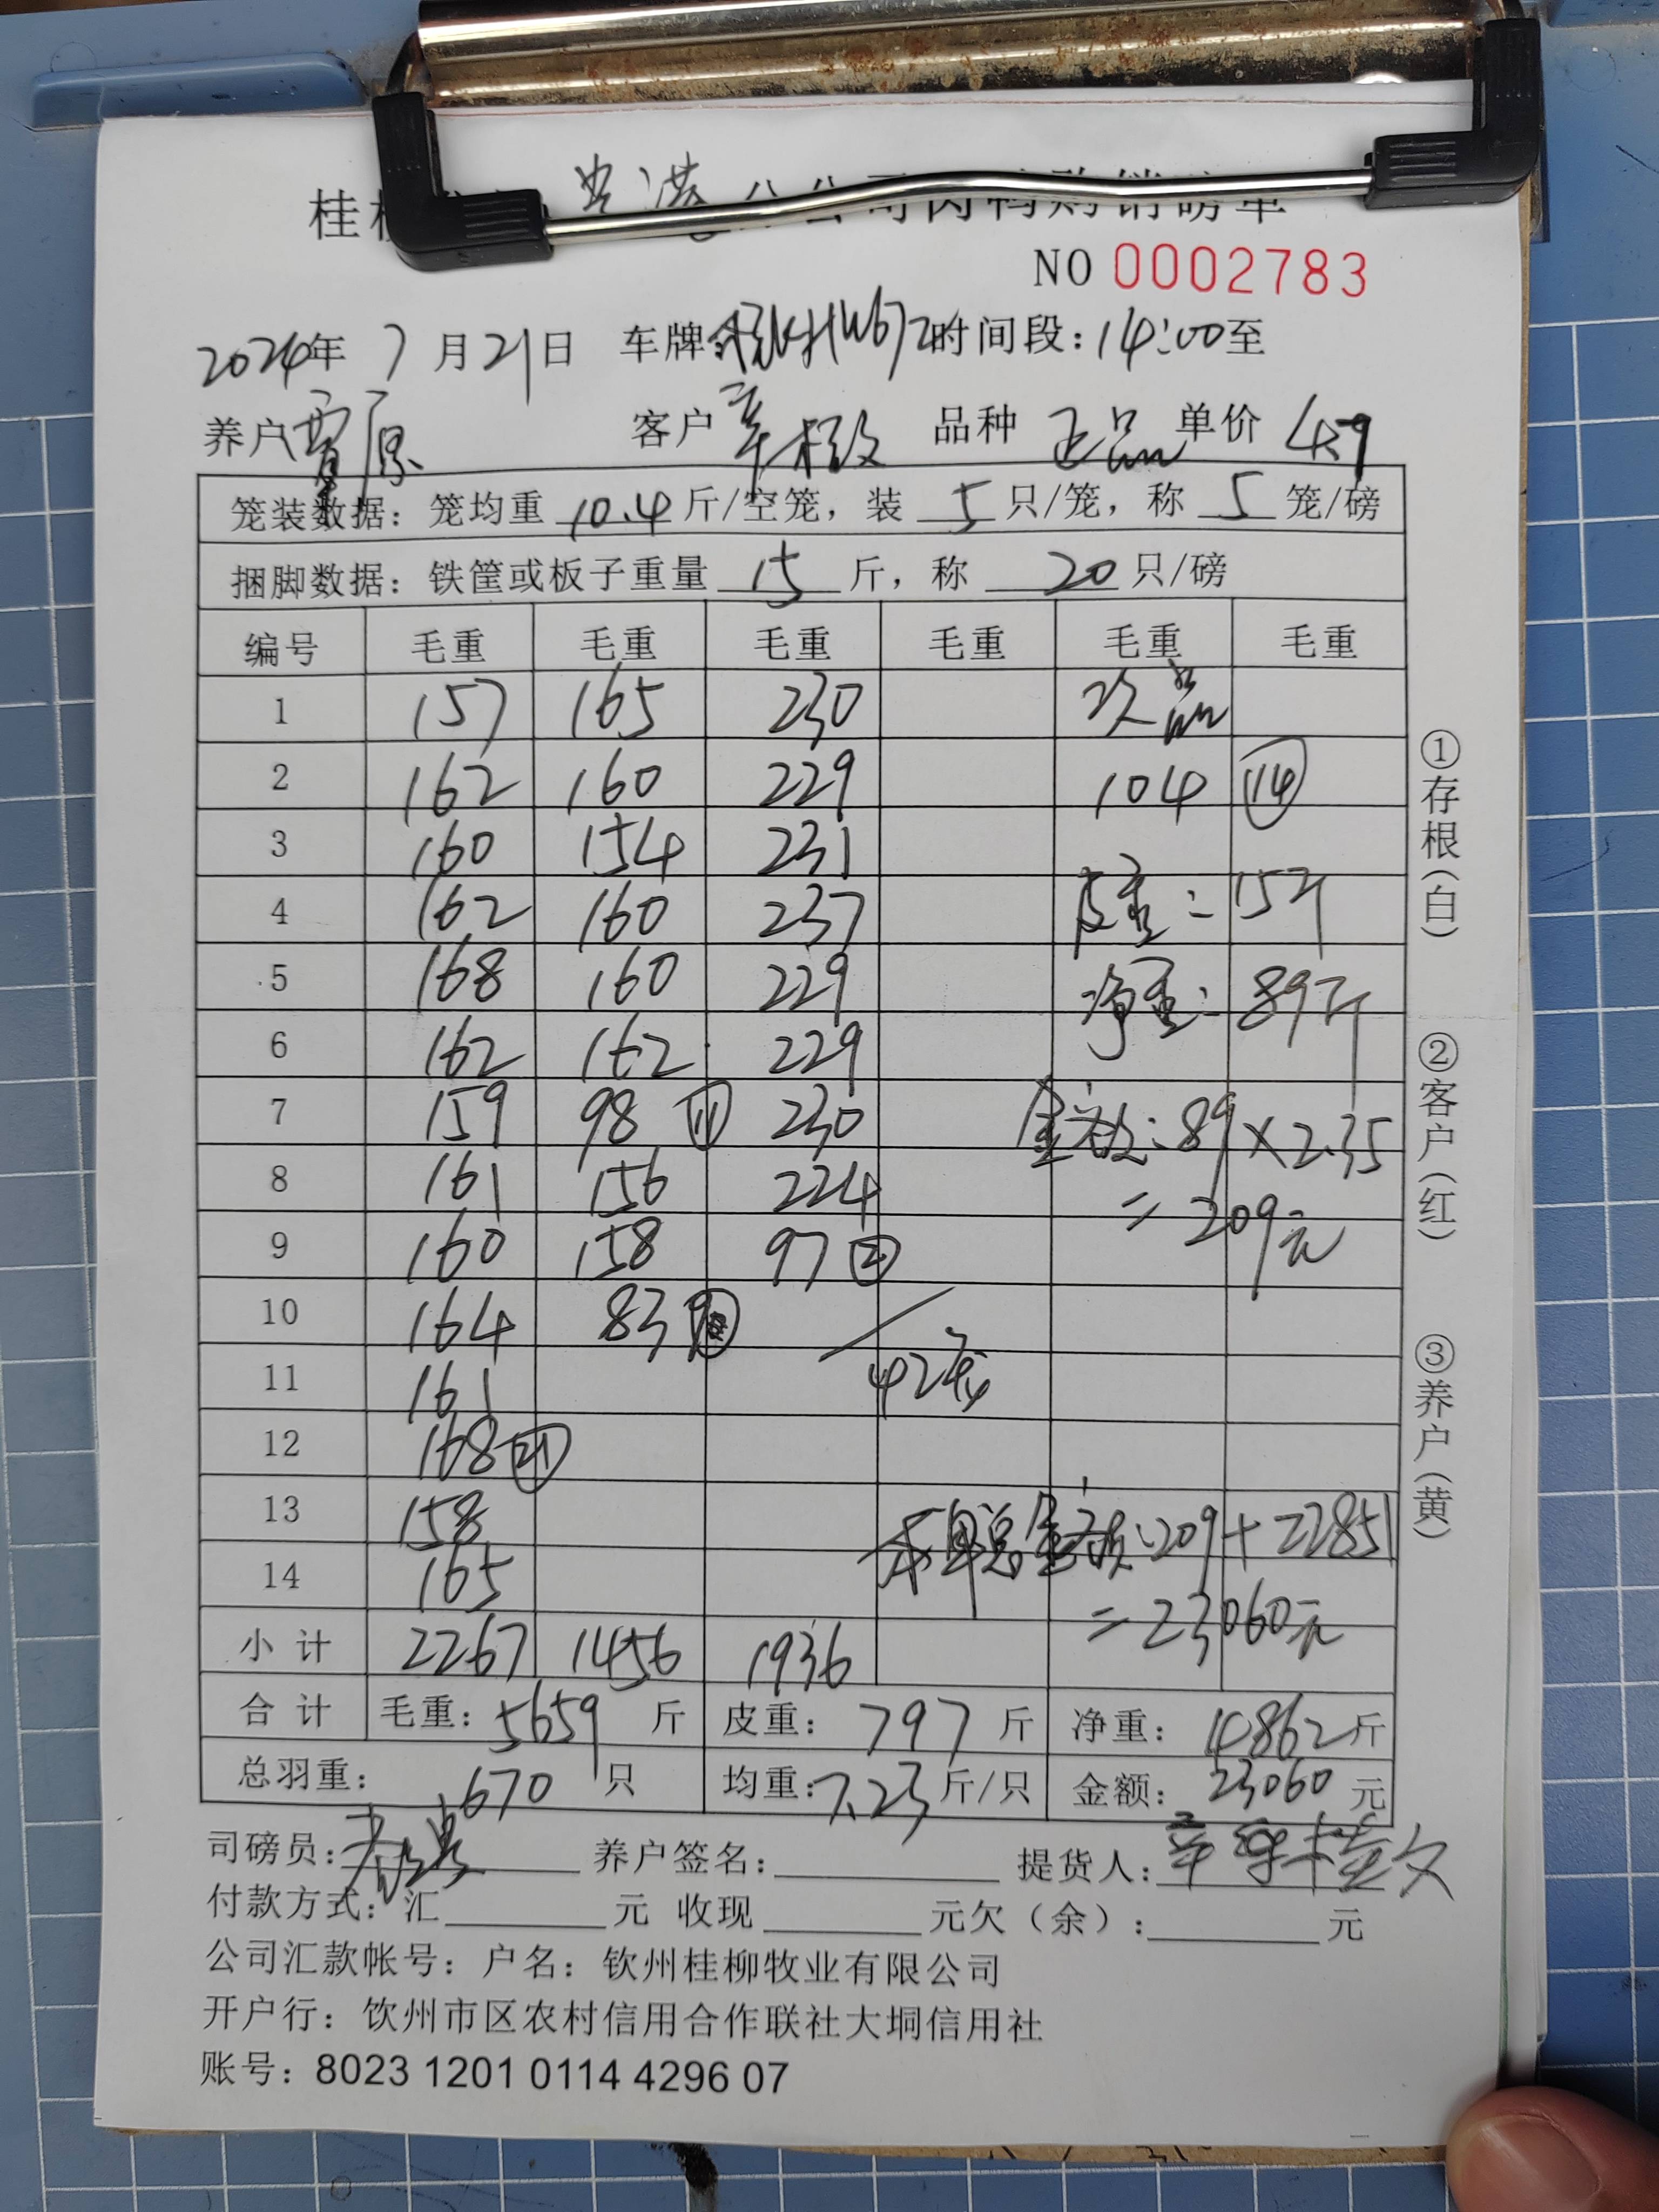 桂 贵港分公司肉鸭购销磅单
NO 0002783
2024年 7月21日 车牌 时间段：14:00至
养户 覃原 客户 品种 正品 单价 4.7
笼装数据：笼均重 10.4 斤/空笼，装 5 只/笼，称 5 笼/磅
捆脚数据：铁筐或板子重量 15 斤，称 20 只/磅
编号 毛重 毛重 毛重 毛重 毛重 毛重
1 157 165 230 次品
2 162 160 229 104 ⑭
3 160 154 231
4 162 160 237 皮重：15斤
5 168 160 229 净重：89斤
6 162 162 229
7 159 98 ⑪ 230 金额：89×2.35
8 161 156 224 =209元
9 160 158 97
10 164 83
11 161 42笼
12 168 ㉑
13 158 本单总金额：209+22851
14 165 =23060元
小计 2267 1456 1936
合计 毛重：5659 斤 皮重：797 斤 净重：4862斤
总羽重：670 只 均重：7.23斤/只 金额：23060元
司磅员： 养户签名： 提货人：
付款方式：汇 元 收现 元欠（余）： 元
公司汇款帐号：户名：钦州桂柳牧业有限公司
开户行：饮州市区农村信用合作联社大垌信用社
账号：8023 1201 0114 4296 07
①存根（白）
②客户（红）
③养户（黄）